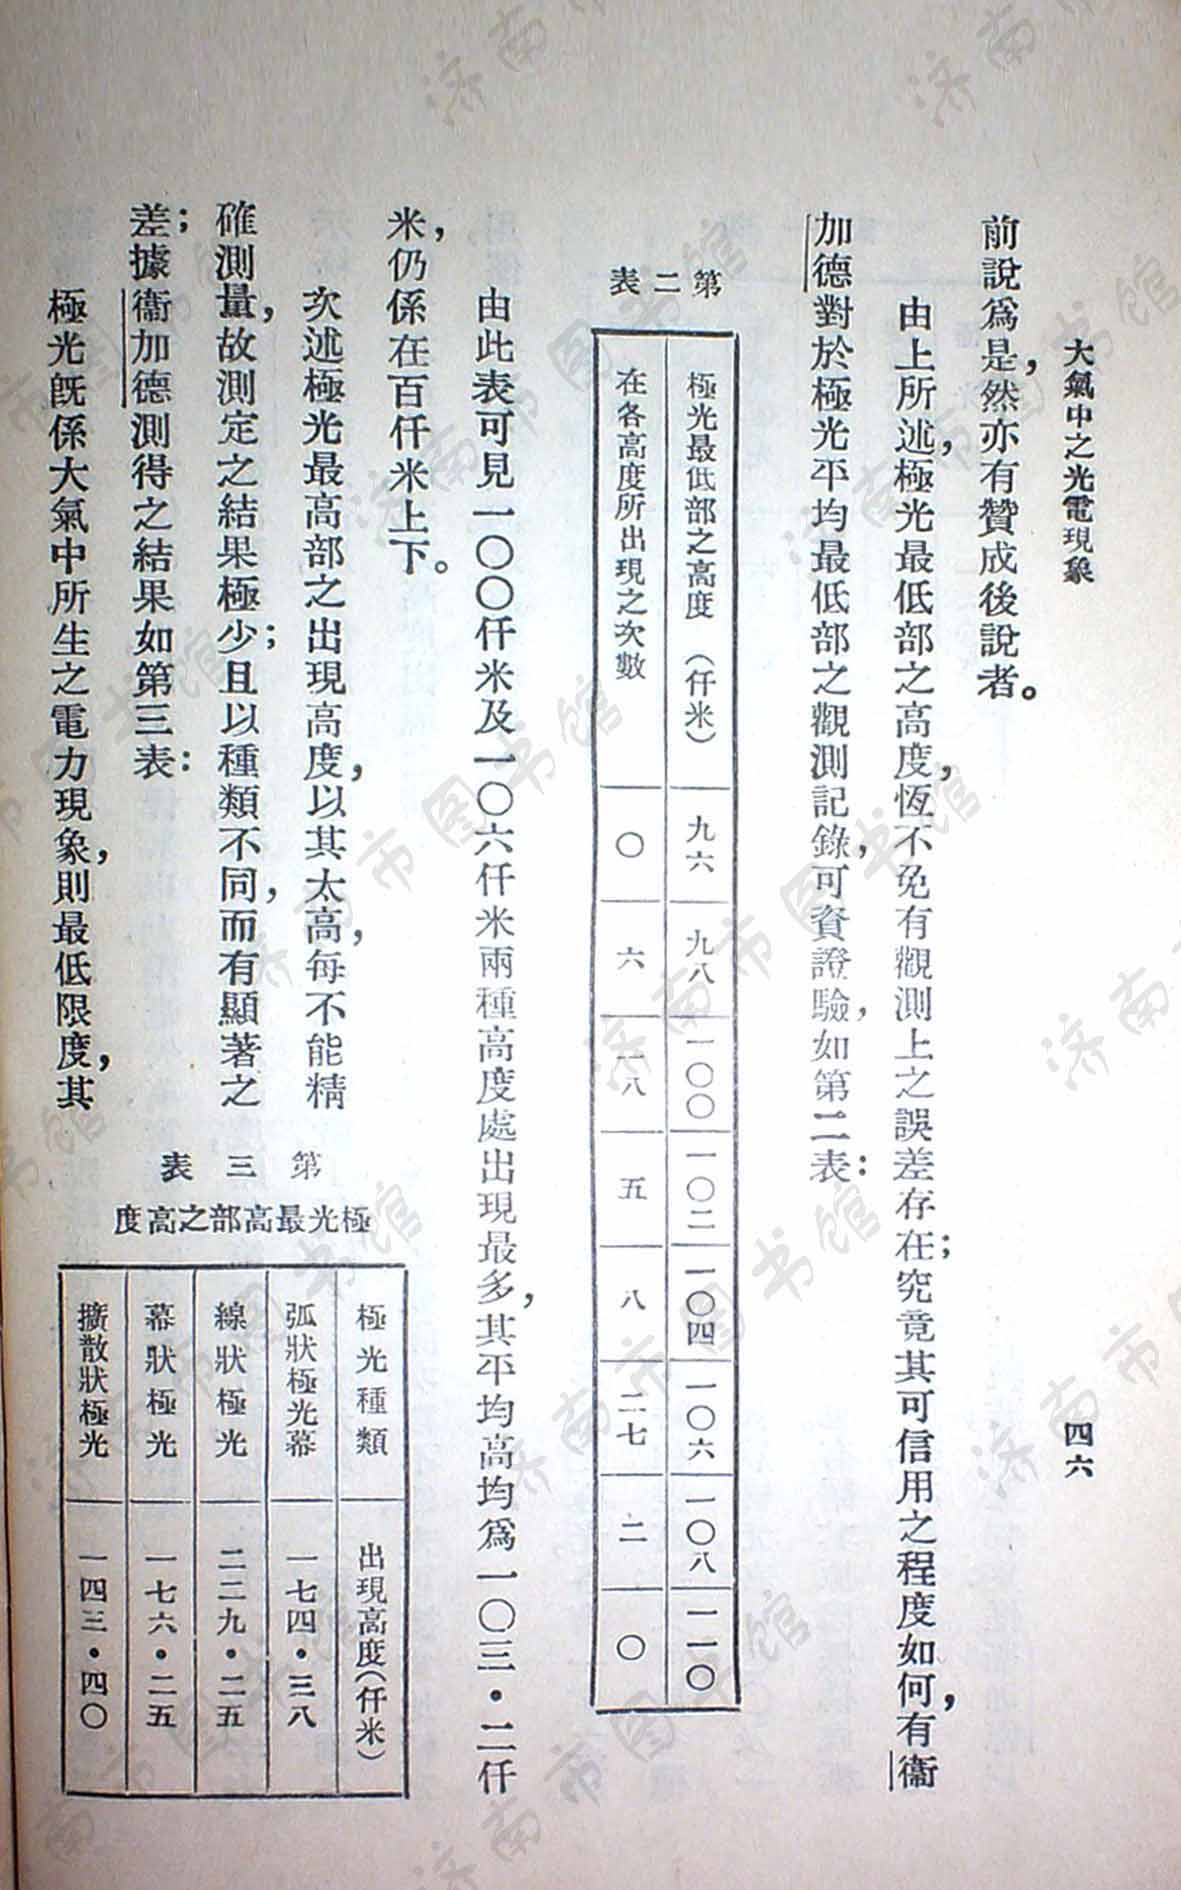 大氣中之光電現象
四六
前說爲是,然亦有贊成後說者。
由上所述,極光最低部之高度,恆不免有觀測上之誤差存在;究竟其可信用之程度如何,有衞
加德對於極光平均最低部之觀測記錄,可資證驗,如第二表:
第二表
極光最低部之高度(仟米) 九六 九八 一〇〇 一〇二 一〇四 一〇六 一〇八 一一〇
在各高度所出現之次數 〇 六 一八 五 八 二七 二 〇
由此表可見一〇〇仟米及一〇六仟米兩種高度處出現最多,其平均高均爲一〇三・二仟
米,仍係在百仟米上下。
次述極光最高部之出現高度,以其太高,每不能精
確測量,故測定之結果極少;且以種類不同,而有顯著之
差;據衞加德測得之結果如第三表:
極光旣係大氣中所生之電力現象,則最低限度,其
第三表
極光最高部之高度
極光種類 出現高度(仟米)
弧狀極光幕 一七四・三八
線狀極光 二二九・二五
幕狀極光 一七六・二五
擴散狀極光 一四三・四〇
济南市图书馆